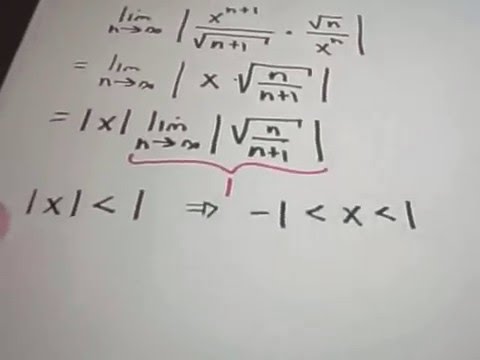 lim n→∞ | x^(n+1) / √(n+1) · √n / x^n |
= lim n→∞ | x · √(n/(n+1)) |
= |x| lim n→∞ | √(n/(n+1)) |
1
|x| < 1 ⇒ -1 < x < 1